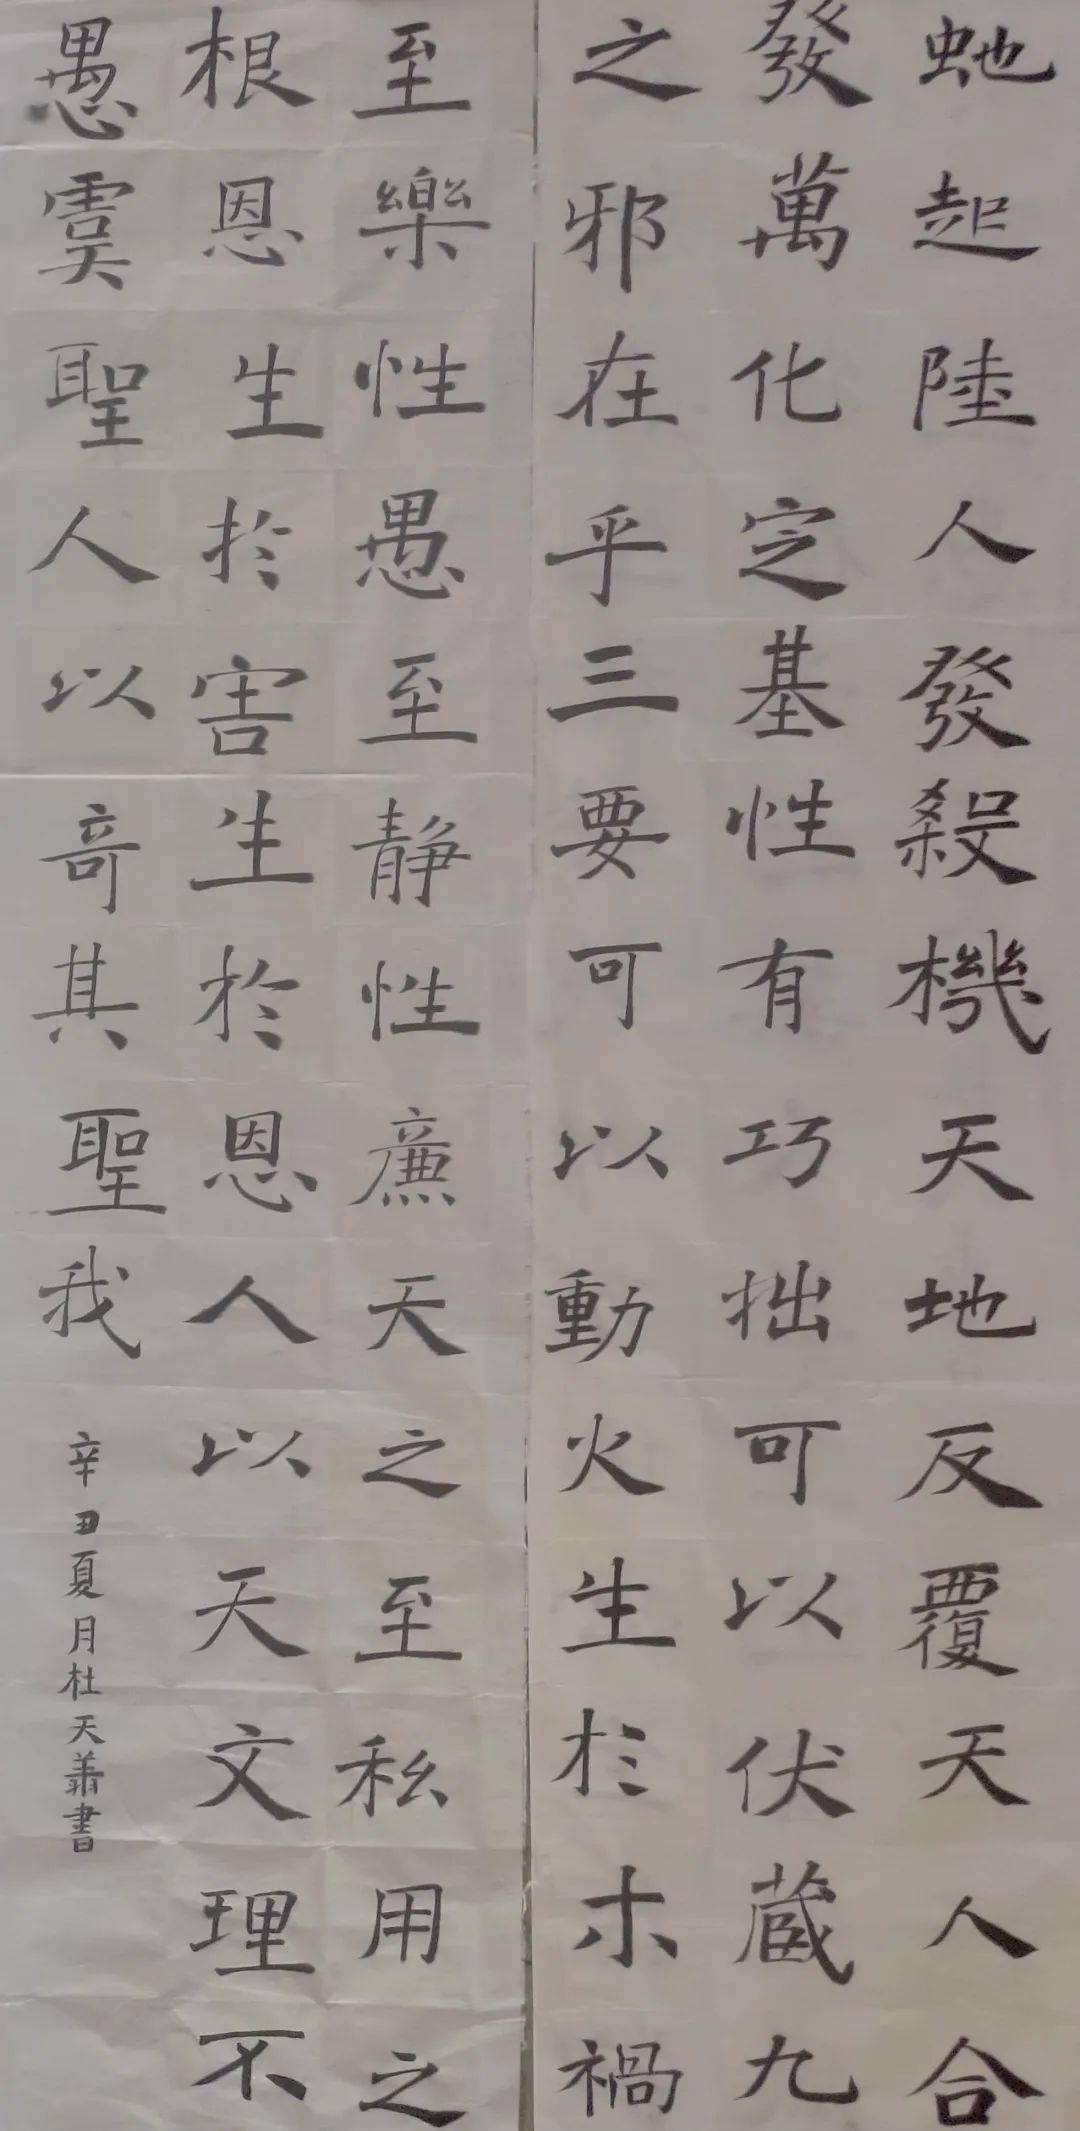 虵起陸人發殺機天地反覆天人合
發萬化定基性有巧拙可以伏藏九
之邪在乎三要可以動火生於木禍
至樂性愚至静性廉天之至私用之
根恩生於害生於恩人以天文理不
愚虞聖人以奇其聖我
辛丑夏月杜天書